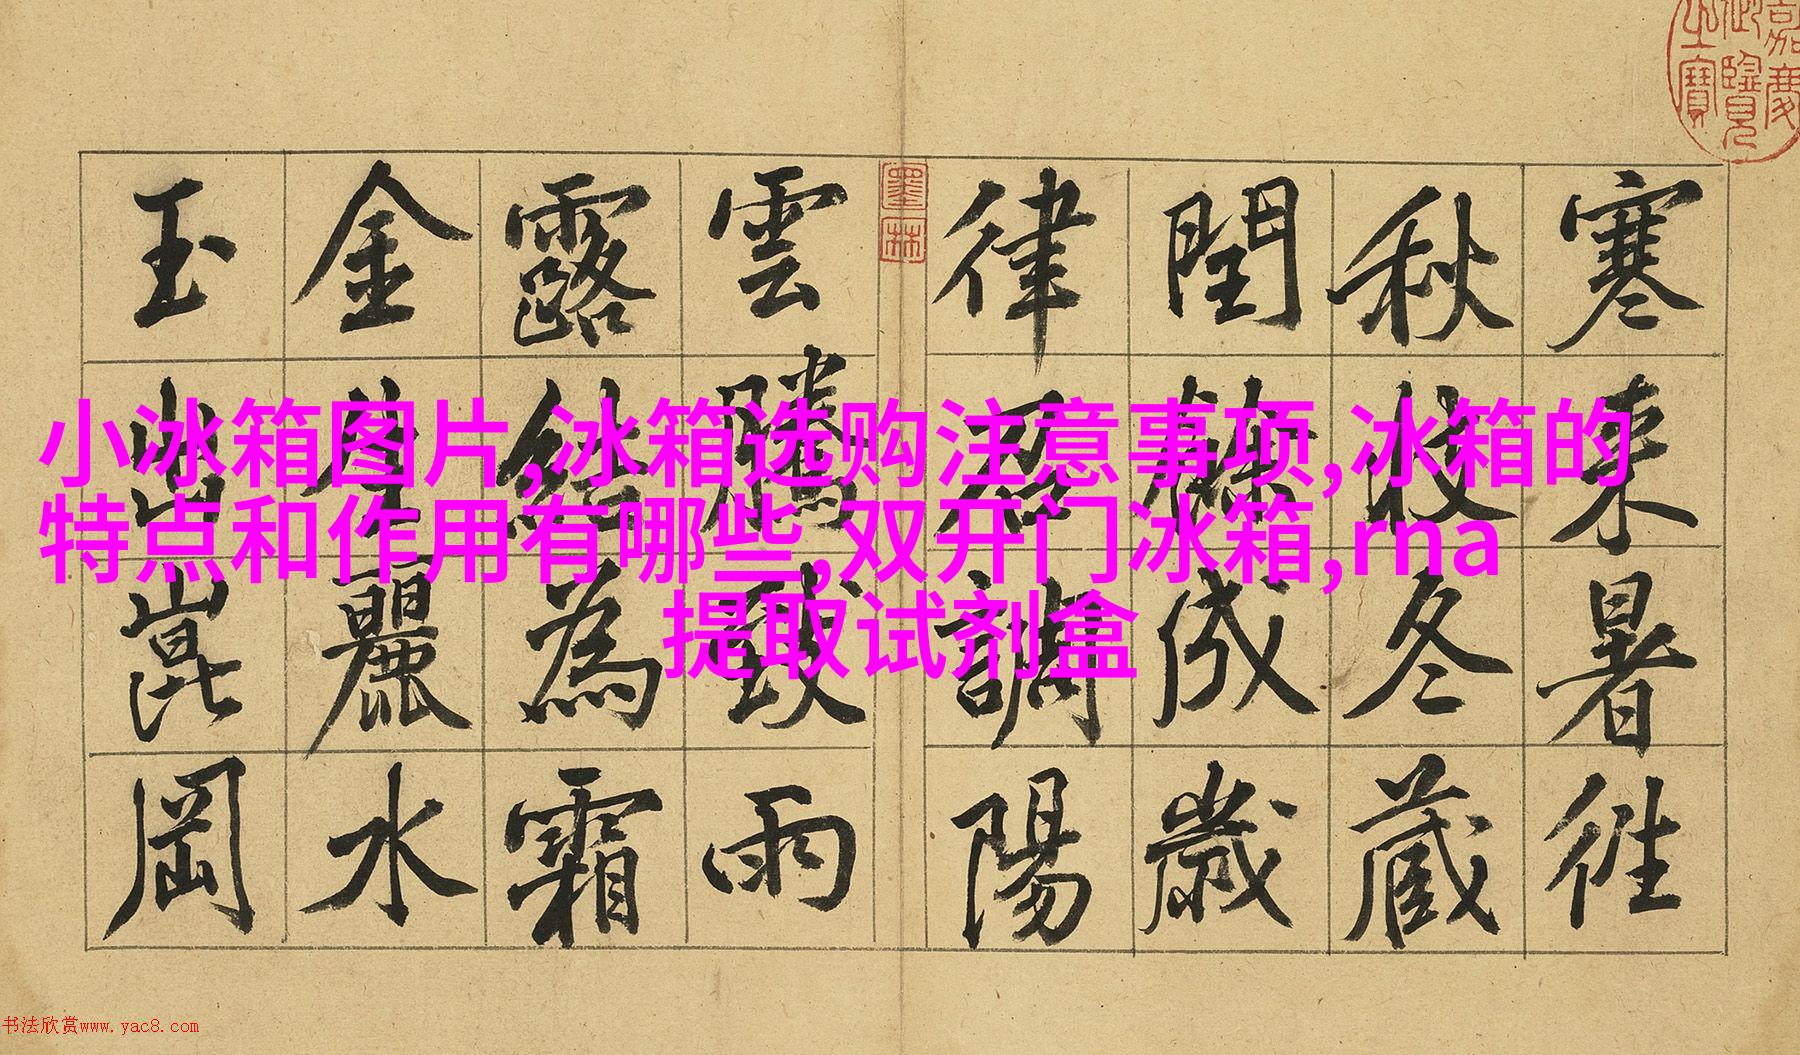 嘉慶御覽之寶
墨林
寒來暑往
秋收冬藏
閏餘成歲
律召調陽
雲騰致雨
露結為霜
金生麗水
玉出崑岡
小冰箱图片,冰箱选购注意事项,冰箱的
特点和作用有哪些,双开门冰箱,rna
提取试剂盒
书法欣赏www.yac8.com